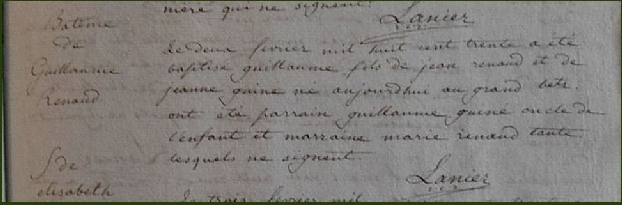 mere qui ne signent.
Lanier
Batême
de
Guillaume
Renaud
Le deux fevrier mil huit cent trente a été
baptise guillaume fils de jean renaud et de
jeanne quine ne aujourdhui au grand
ont été parrain guillaume quine oncle de
lenfant et marraine marie renaud tante
lesquels ne signent
Lanier
S de
elisabeth
Le trois fevrier mil